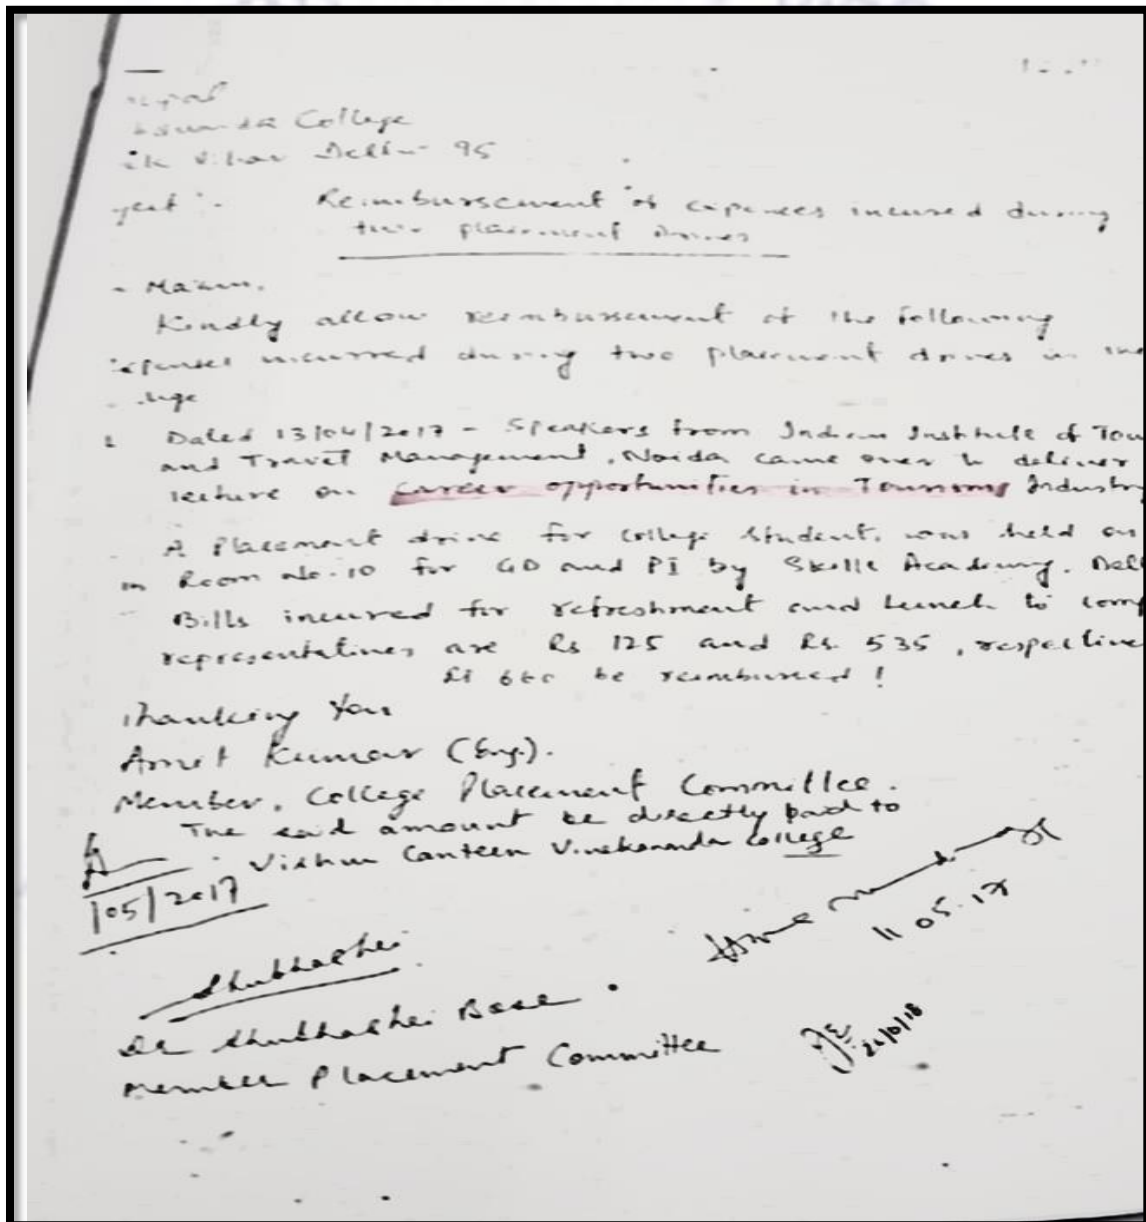 College
Vihar Delhi 95
Reimbursement of expenses incured during
two placement drives
Ma'am,
Kindly allow reimbursement of the following
incurred during two placement drives in the
Dated 13/04/2017 - Speakers from Indian Institute of Tou
and Travel Management, Noida came over to deliver
lecture on Career opportunities in Tourism Industry
A Placement drive for college students was held on
in Room No. 10 for GD and PI by Skills Academy, Del
Bills incured for refreshment and lunch to comp
representatives are Rs 125 and Rs. 535, respective
660 be reimbursed!
Thanking You
Amit Kumar (Eng.).
Member, College Placement Committee.
The said amount be directly paid to
Vishnu Canteen Vivekananda College
/05/2017
11 05.17
Shubhashei
Dr Shubhashei
Member Placement Committee